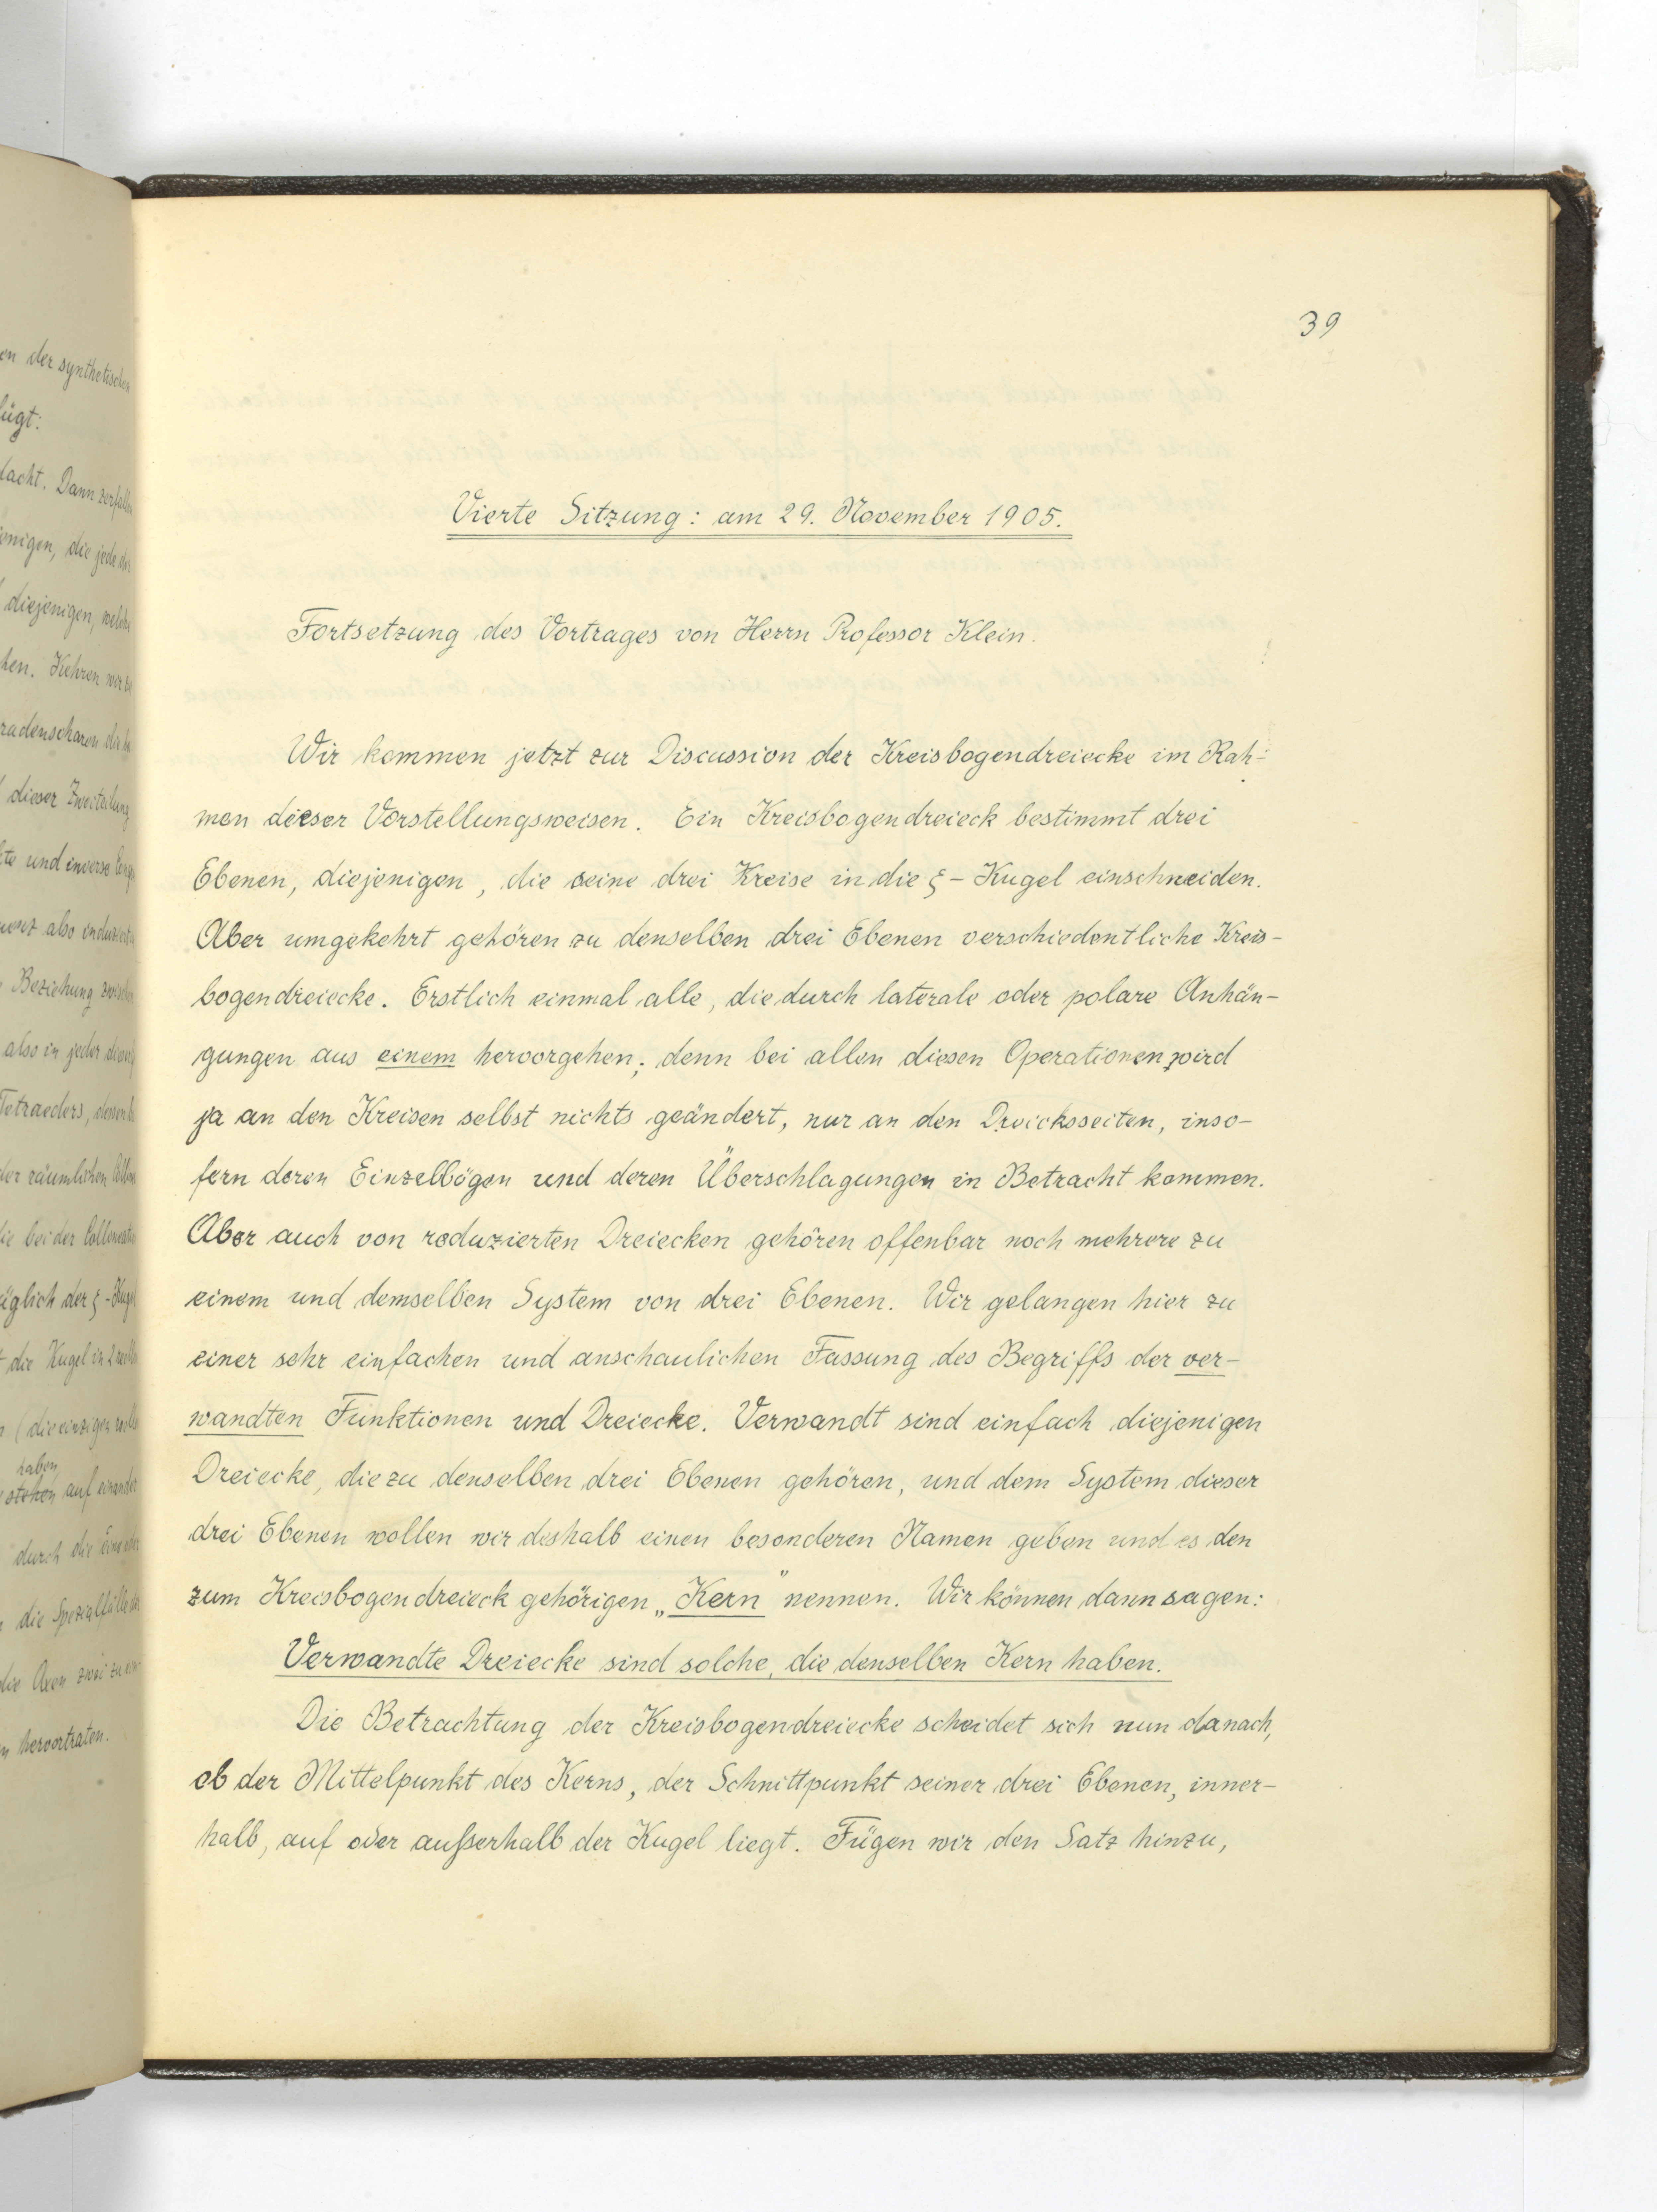 en der synthetischen
fügt:
dacht. Dann zerfallen
diejenigen, welche
hen. Kehren wir
radenscharen
dieser Zweiteilung
te und inverse
also
Beziehung
also in jeder
Tetraeders, dessen
der räumlichen
die bei der
üglich der ξ-Kugel
die Kugel in 2
(die einzigen
haben
stehen auf einander
durch die
die Spezialfälle
die Axen zwei zu
hervortraten.
39
Vierte Sitzung: am 29. November 1905.
Fortsetzung des Vortrages von Herrn Professor Klein.
Wir kommen jetzt zur Discussion der Kreisbogendreiecke im Rah-
men dieser Vorstellungsweisen. Ein Kreisbogendreieck bestimmt drei
Ebenen, diejenigen, die seine drei Kreise in die ξ-Kugel einschneiden.
Aber umgekehrt gehören zu denselben drei Ebenen verschiedentliche Kreis-
bogendreiecke. Erstlich einmal alle, die durch laterale oder polare Anhän-
gungen aus einem hervorgehen; denn bei allen diesen Operationen wird
ja an den Kreisen selbst nichts geändert, nur an den Dreicksseiten, inso-
fern deren Einzelbögen und deren Überschlagungen in Betracht kommen.
Aber auch von reduzierten Dreiecken gehören offenbar noch mehrere zu
einem und demselben System von drei Ebenen. Wir gelangen hier zu
einer sehr einfachen und anschaulichen Fassung des Begriffs der ver-
wandten Funktionen und Dreiecke. Verwandt sind einfach diejenigen
Dreiecke, die zu denselben drei Ebenen gehören, und dem System dieser
drei Ebenen wollen wir deshalb einen besonderen Namen geben und es den
zum Kreisbogendreieck gehörigen „Kern" nennen. Wir können dann sagen:
Verwandte Dreiecke sind solche, die denselben Kern haben.
Die Betrachtung der Kreisbogendreiecke scheidet sich nun danach,
ob der Mittelpunkt des Kerns, der Schnittpunkt seiner drei Ebenen, inner-
halb, auf oder außerhalb der Kugel liegt. Fügen wir den Satz hinzu,